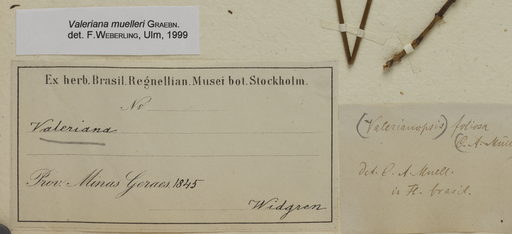 Valeriana muelleri GRAEBN.
det. F.WEBERLING, Ulm, 1999
Ex herb. Brasil. Regnellian. Musei bot. Stockholm.
No
Valeriana
Prov: Minas Geraes 1845
Widgren
(Valerianopsis) foliosa
(C. A. Müll
det. C. A. Muell.
in Fl. brasil.